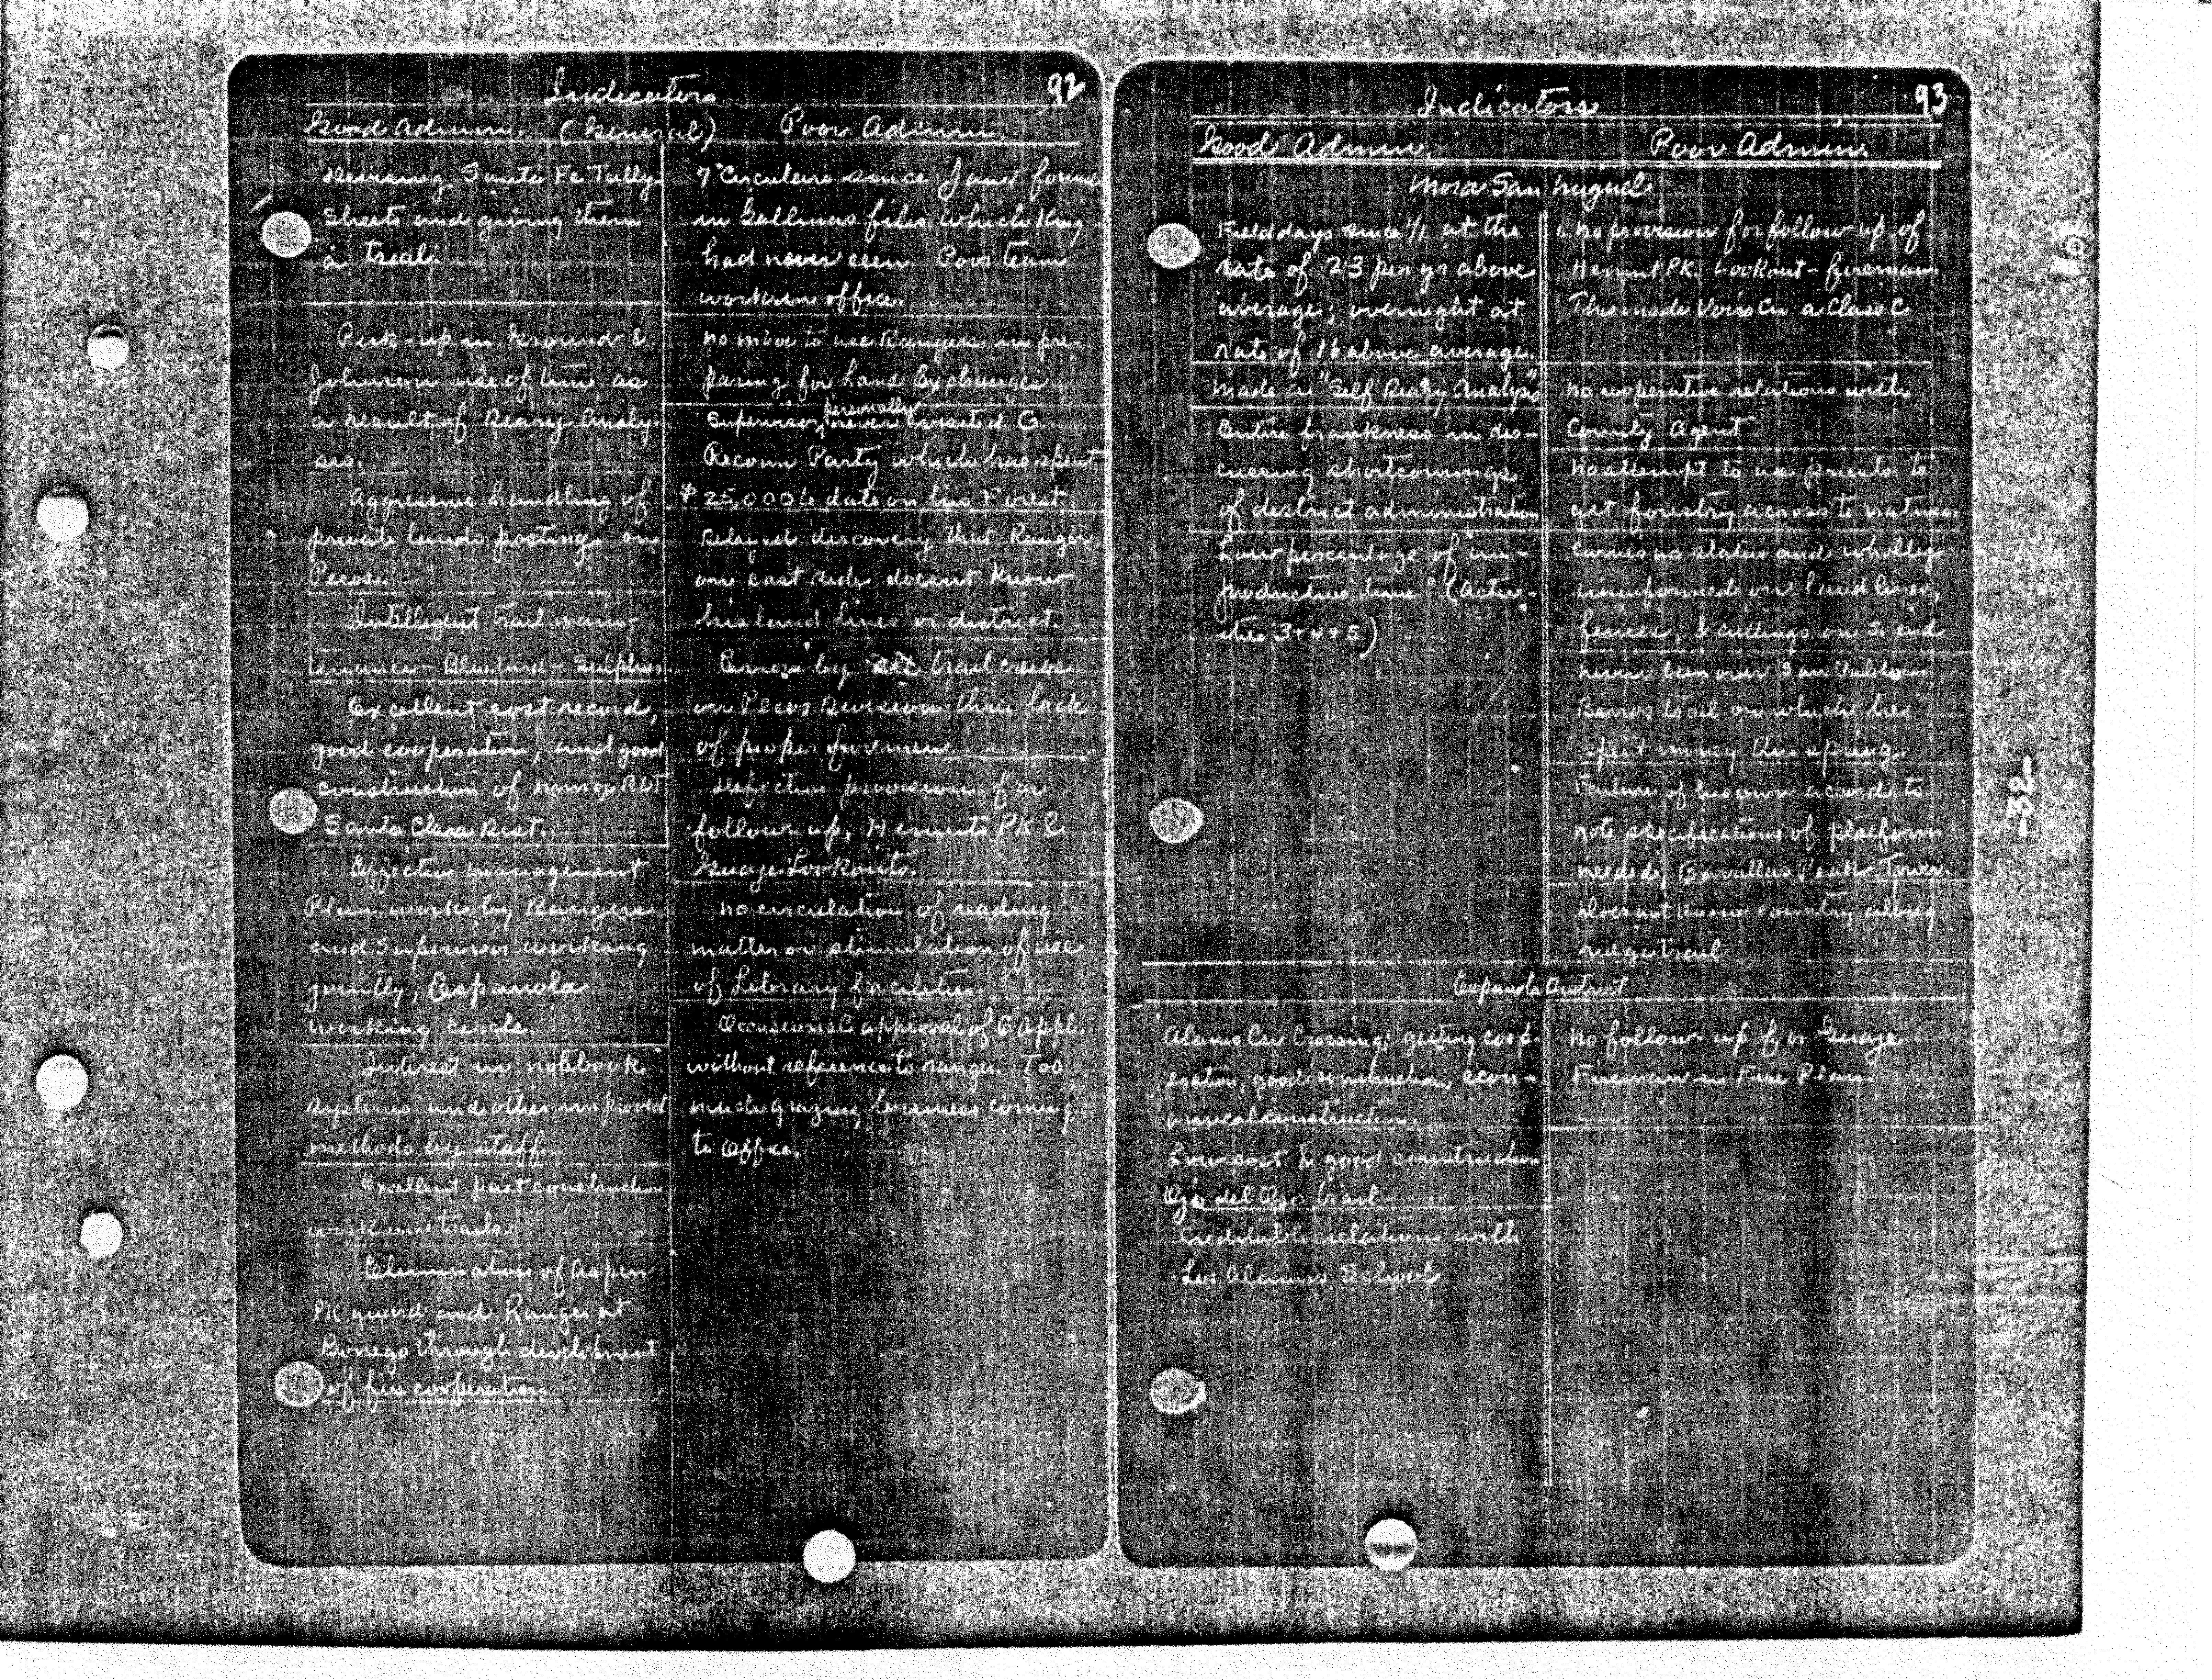 Indicators 92
Good Admin. (General) Poor Admin.
Devising Santa Fe Tally
Sheets and giving them
a trial.
Pick-up in Ground &
Johnson use of time as
a result of Diary Analy-
sis.
Aggressive handling of
private lands posting on
Pecos.
Intelligent trail main-
tenance - Bluebird - Sulphur.
Excellent cost record,
good cooperation, and good
construction of minor R&T
Santa Clara Dist.
Effective management
Plan work by Rangers
and Supervisor working
jointly, Espanola
working circle.
Interest in notebook
systems and other improved
methods by staff.
Excellent past construction
work on trails.
Elimination of Aspen
PK guard and Ranger at
Borrego through development
of fire cooperation
7 Circulars since Jan 1 found
in Gallinas files which King
had never seen. Poor team
work in office.
No move to use Rangers in pre-
paring for Land Exchanges
Supervisor personally never visited G
Reconn Party which has spent
$25,000 to date on his Forest
Delayed discovery that Ranger
on east side doesnt know
his land lines or district.
Errors by trail crews
on Pecos Division thru lack
of proper foremen.
Defective provision for
follow-up, Hermits PK &
Guaje Lookouts.
No circulation of reading
matter or stimulation of use
of Library facilities.
Occasional approval of G appl.
without reference to ranger. Too
much grazing business coming
to Office.
Indicators 93
Good Admin. Poor Admin.
Mora San Miguel
Field days since 1/1 at the
rate of 23 per yr above
average; overnight at
rate of 16 above average.
Made a "Self Diary Analysis"
Entire frankness in dis-
cussing shortcomings
of district administration
Low percentage of "un-
productive time" (activi-
ties 3+4+5)
1. No provision for follow up of
Hermit PK. Lookout-fireman.
This made a Class C
No cooperative relations with
County Agent
No attempt to use priests to
get forestry across to natives.
Carries no status and wholly
uninformed on land lines,
fences, & cuttings on S. end
Never been over San Pablo
Barros trail on which he
spent money this spring.
Failure of his own accord to
note specifications of platform
needed, Barillas Peak Tower.
Does not know country along
ridge trail
Espanola District
Alamo Cn Crossing; getting coop-
eration, good construction, econ-
omical construction.
Low cost & good construction
Ojo del Oso trail
Creditable relations with
Los Alamos School
No follow-up for Guaje
Fireman in Fire Plan
-32-